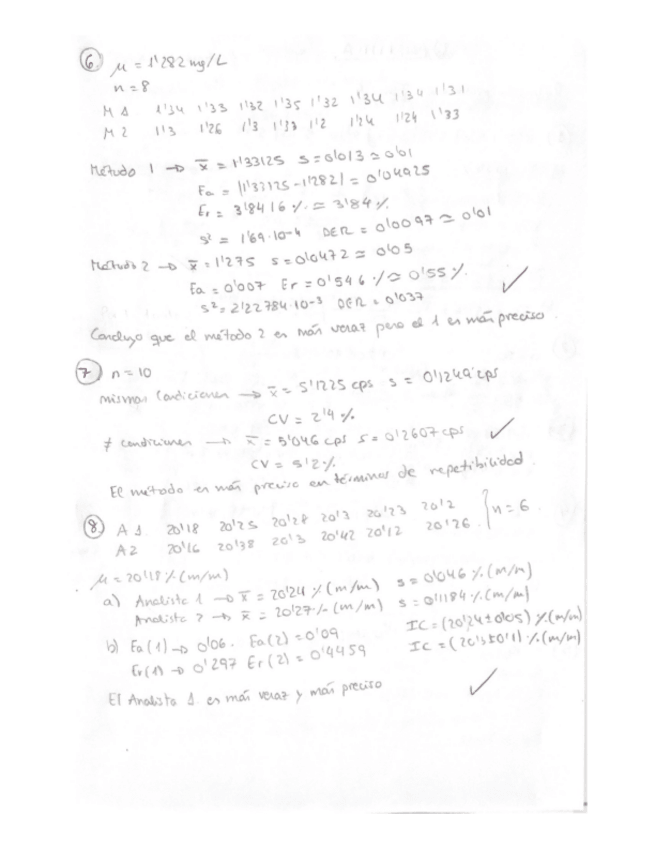 6) μ = 1'282 mg/L
n = 8
M 1 1'34 1'33 1'32 1'35 1'32 1'34 1'34 1'31
M 2 1'3 1'26 1'3 1'2 1'24 1'24 1'33
Método 1 → x̄ = 1'33125 s = 0'013 ≃ 0'01
Ea = |1'33125 - 1'282| = 0'04925
Er = 3'8416 % ≃ 3'84 %
s² = 1'69·10-4 DER = 0'0097 ≃ 0'01
Método 2 → x̄ = 1'275 s = 0'0472 ≃ 0'05
Ea = 0'007 Er = 0'546 % ≃ 0'55 %
s² = 2'22784·10-3 DER = 0'037 ✓
Concluyo que el método 2 es más veraz pero el 1 es más preciso.
7) n = 10
mismas condiciones → x̄ = 5'1225 cps s = 0'1249 cps
CV = 2'4 %
≠ condiciones → x̄ = 5'046 cps s = 0'2607 cps ✓
CV = 5'2 %
El método es más preciso en términos de repetibilidad.
8) A 1. 20'18 20'25 20'28 20'3 20'23 20'2 } n = 6.
A 2 20'16 20'38 20'3 20'42 20'12 20'26
μ = 20'18 % (m/m)
a) Analista 1 → x̄ = 20'24 % (m/m) s = 0'046 % (m/m)
Analista 2 → x̄ = 20'27 % (m/m) s = 0'1184 % (m/m)
b) Ea (1) → 0'06. Ea (2) = 0'09 IC = (20'24 ± 0'05) % (m/m)
Er (1) → 0'297 Er (2) = 0'4459 IC = (20'3 ± 0'1) % (m/m)
El Analista 1 es más veraz y más preciso ✓